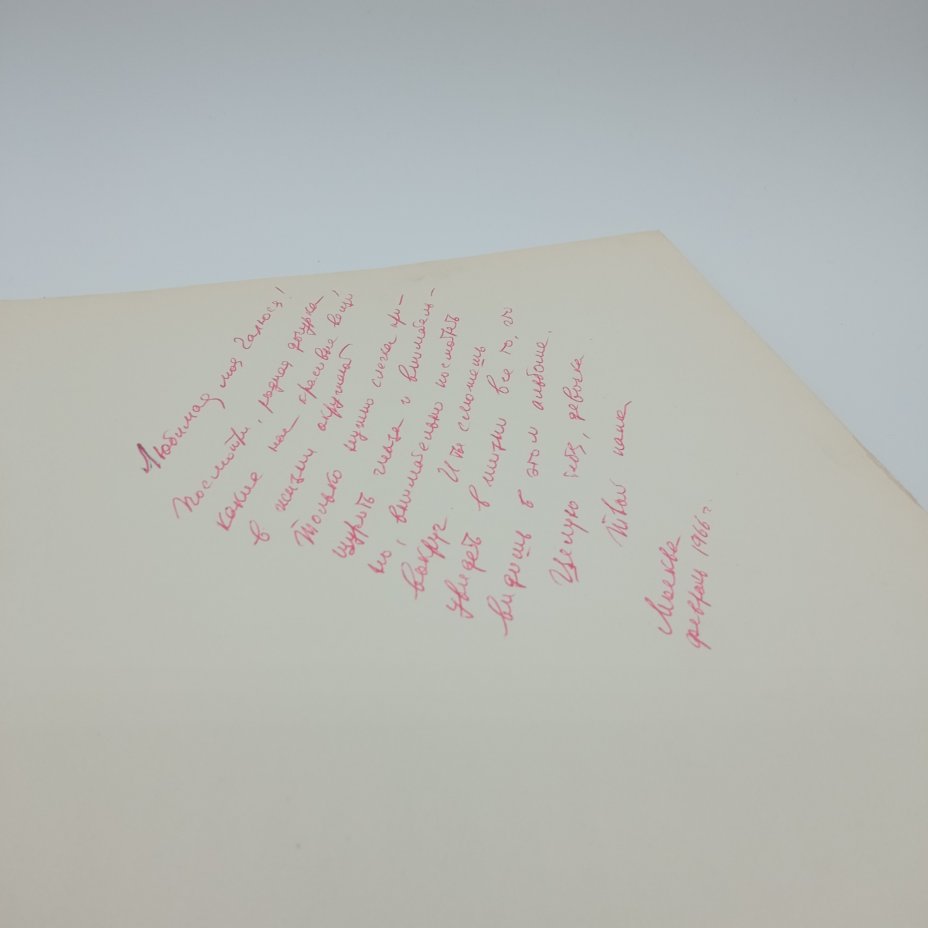 Любимая моя Галюся!
Посмотри, родная дочурка,
какие нас красивые вещи
в жизни окружают,
только нужно слегка при-
щурить глаза и вниматель-
но, внимательно посмотреть
вокруг. И ты сможешь
увидеть в жизни все то, что
видишь в этом альбоме.
Целую тебя, девочка
Твой папа.
Москва
февраль 1966 г.